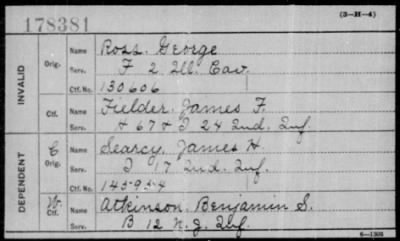 178381
(3-H-4)
INVALID
Orig.
Name Ross. George
Serv. F 2 Ill. Cav.
Ctf. No. 130606
Ctf.
Name Fielder. James F.
Serv. H 67 & I 24 Ind. Inf.
DEPENDENT
C
Orig.
Name Searcy. James H
Serv. I 17 Ind. Inf.
Ctf. No. 145954
W.
Ctf.
Name Atkinson. Benjamin S.
Serv. B 12 N. J. Inf.